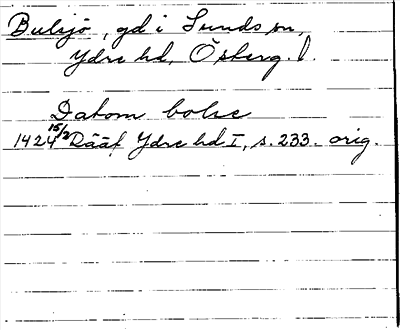 Bulsjö, gd i Sunds sn,
Ydre hd, Österg. l.
Datom bolse
1424 15/2 Rääf Ydre hd I, s. 233. orig.